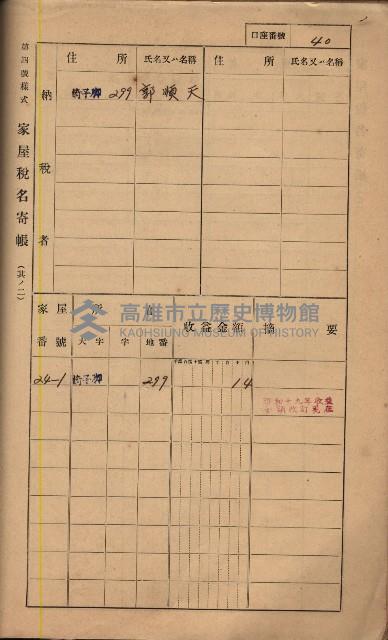 口座番號 40
第四號樣式 家屋稅名寄帳 (其ノ二)
納稅者
住所 氏名又ハ名稱 住所 氏名又ハ名稱
椅子脚 299 郭順天
高雄市立歷史博物館
KAOHSIUNG MUSEUM OF HISTORY
家屋番號 家屋所在 收益金額 摘要
大字 字 地番
24-1 椅子脚 299 14
昭和十九年收益
金額改訂現在